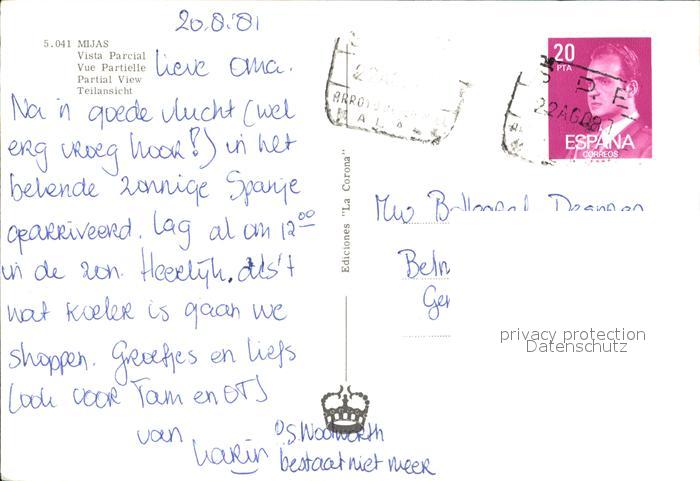 20.8.'81
5.041 MIJAS
Vista Parcial
Vue Partielle
Partial View
Teilansicht
Lieve oma.
Na 'n goede vlucht (wel
erg vroeg hoor!) in het
bekende zonnige Spanje
gearriveerd. Lag al om 12⁰⁰
in de zon. Heerlijk. als 't
wat koeler is gaan we
shoppen. Groetjes en liefs
(ook voor Tam en OT)
van
Karin
P.S. Woolworth
bestaat niet meer
Ediciones "La Corona"
22 AGO
MALA
20
PTA
22 AGO 81
ESPAÑA
CORREOS
Mw
privacy protection
Datenschutz